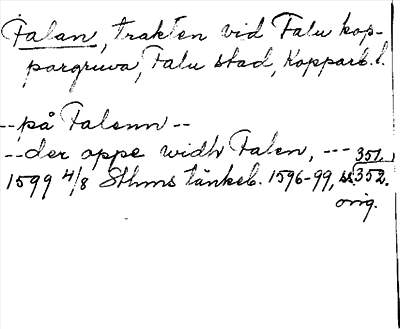 Falan, trakten vid Falu kop-
pargruva, Falu stad, Kopparb. l.
--på Falenn--
--der oppe widh Falen, --- 351,
1599 4/8 Sthms tänkeb. 1596-99, ss. 352.
orig.